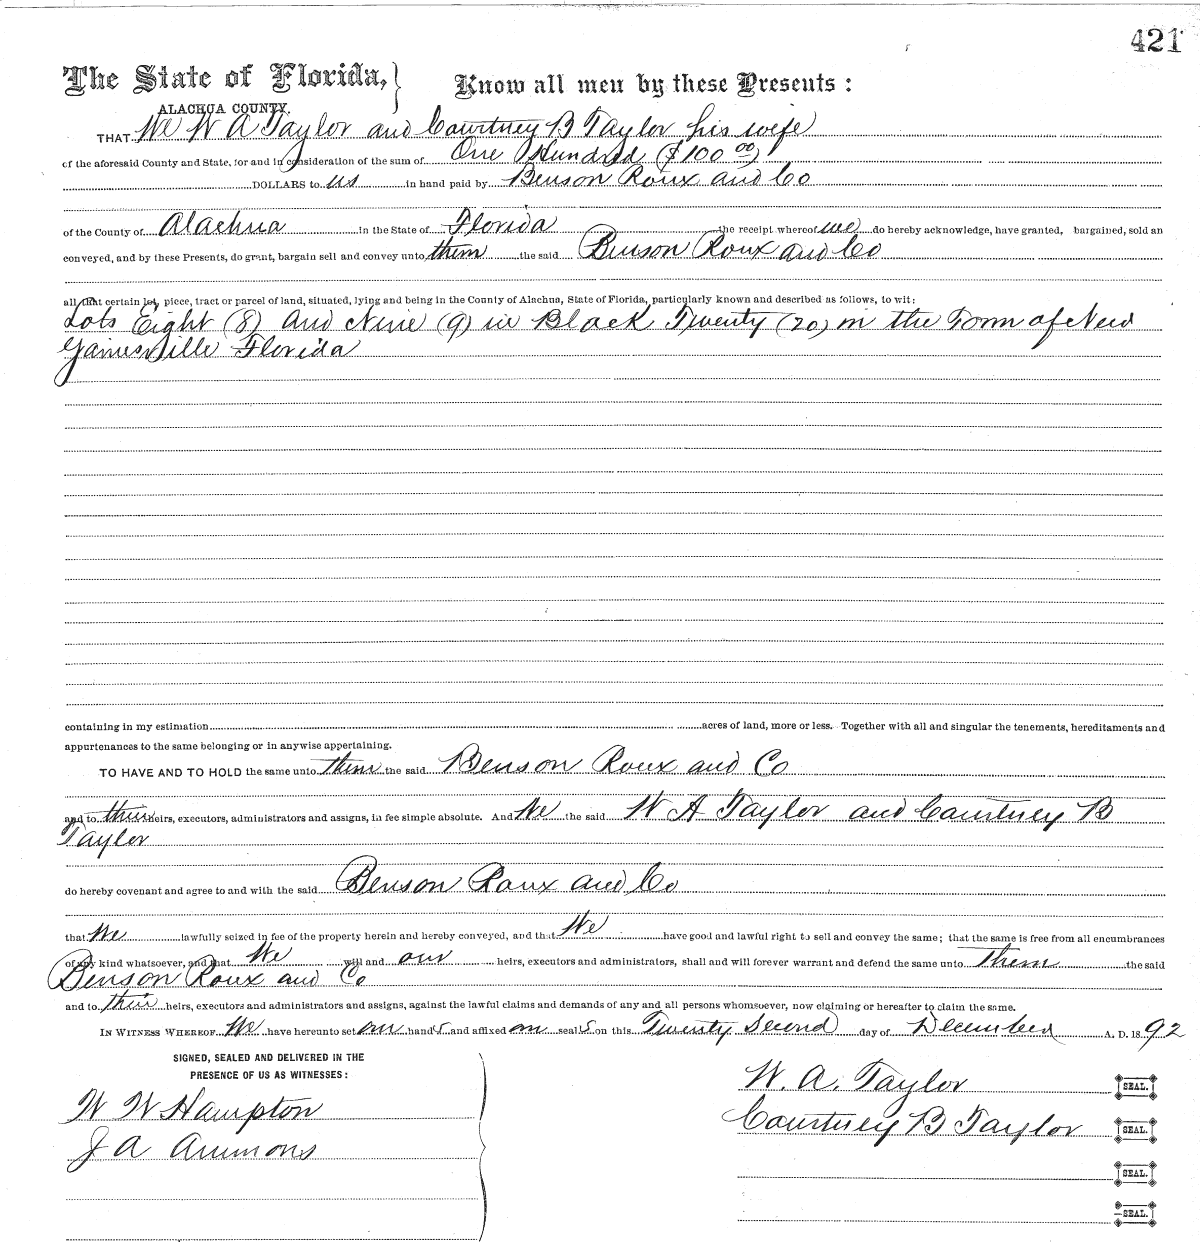 421
The State of Florida,
Know all men by these Presents :
ALACHUA COUNTY.
THAT We W A Taylor and Courtney B Taylor his wife
of the aforesaid County and State, for and in consideration of the sum of One Hundred ($100 00)
DOLLARS to us in hand paid by Benson Roux and Co
of the County of Alachua in the State of Florida the receipt whereof we do hereby acknowledge, have granted, bargained, sold an
conveyed, and by these Presents, do grant, bargain sell and convey unto them the said Benson Roux and Co
all that certain lot, piece, tract or parcel of land, situated, lying and being in the County of Alachua, State of Florida, particularly known and described as follows, to wit:
Lots Eight (8) and Nine (9) in Block Twenty (20) in the Town of New
Gainesville Florida
containing in my estimation acres of land, more or less. Together with all and singular the tenements, hereditaments and
appurtenances to the same belonging or in anywise appertaining.
TO HAVE AND TO HOLD the same unto them the said Benson Roux and Co
and to their heirs, executors, administrators and assigns, in fee simple absolute. And We the said W A Taylor and Courtney B
Taylor
do hereby covenant and agree to and with the said Benson Roux and Co
that We lawfully seized in fee of the property herein and hereby conveyed, and that We have good and lawful right to sell and convey the same; that the same is free from all encumbrances
of any kind whatsoever, and that We will and our heirs, executors and administrators, shall and will forever warrant and defend the same unto them the said
Benson Roux and Co
and to their heirs, executors and administrators and assigns, against the lawful claims and demands of any and all persons whomsoever, now claiming or hereafter to claim the same.
IN WITNESS WHEREOF We have hereunto set our hands and affixed our seals on this Twenty Second day of December A. D. 1892
SIGNED, SEALED AND DELIVERED IN THE
PRESENCE OF US AS WITNESSES:
W. A. Taylor SEAL.
W W Hampton
Courtney B Taylor SEAL.
J A Ammons
SEAL.
SEAL.